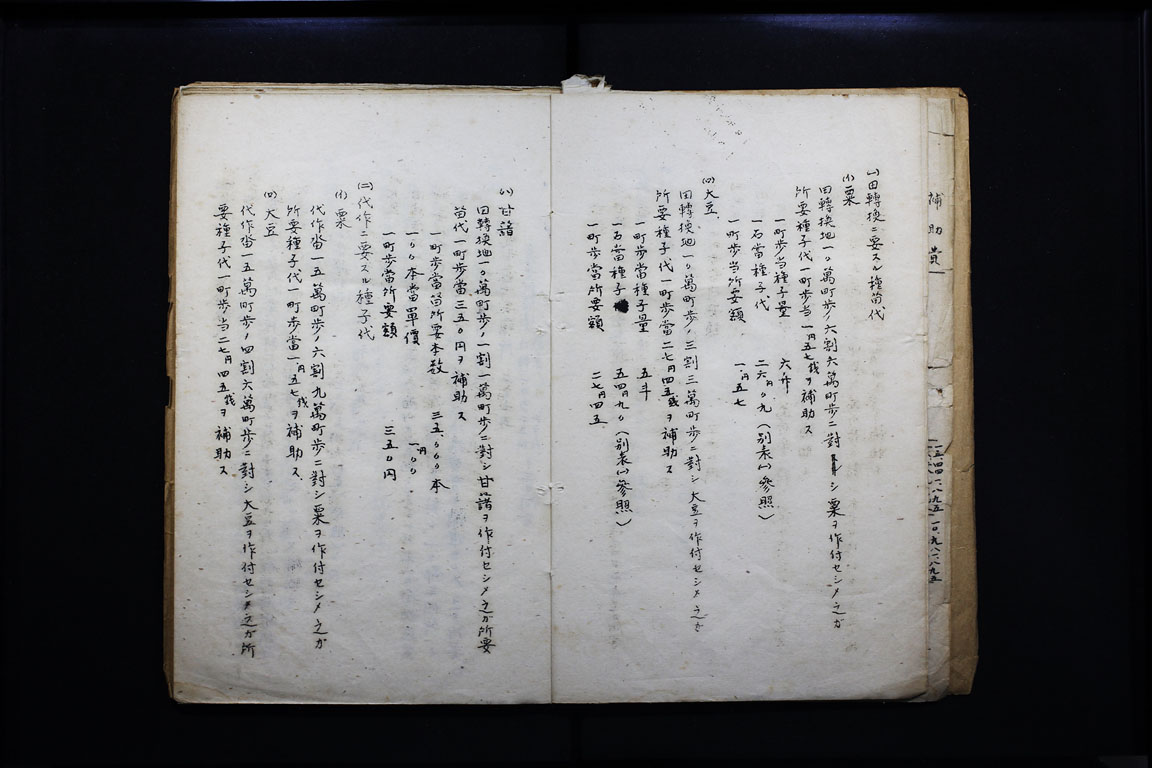 補助費
(一)田轉換ニ要スル種苗代
(イ)粟
田轉換地一〇萬町歩ノ六割六萬町歩ニ對シ粟ヲ作付セシメ之ガ
所要種子代一町歩当一円五七銭ヲ補助ス
一町歩当種子量 六升
一石當種子代 二六円〇九(別表(一)參照)
一町歩当所要額 一円五七
(ロ)大豆
田轉換地一〇萬町歩ノ三割三萬町歩ニ對シ大豆ヲ作付セシメ之ガ
所要種子代一町歩當二七円四五銭ヲ補助ス
一町歩當種子量 五斗
一石當種子 五四円九〇(別表(一)參照)
一町歩當所要額 二七円四五
(ハ)甘藷
田轉換地一〇萬町歩ノ一割一萬町歩ニ對シ甘藷ヲ作付セシメ之ガ所要
苗代一町歩當三五〇円ヲ補助ス
一町歩當苗所要本数 三五、〇〇〇本
一〇〇本當單價 一円〇〇
一町歩當所要額 三五〇円
(二)代作ニ要スル種子代
(イ)粟
代作畓一五萬町歩ノ六割九萬町歩ニ對シ粟ヲ作付セシメ之ガ
所要種子代一町歩當一円五七銭ヲ補助ス
(ロ)大豆
代作畓一五萬町歩ノ四割六萬町歩ニ對シ大豆ヲ作付セシメ之ガ所
要種子代一町歩当二七円四五銭ヲ補助ス